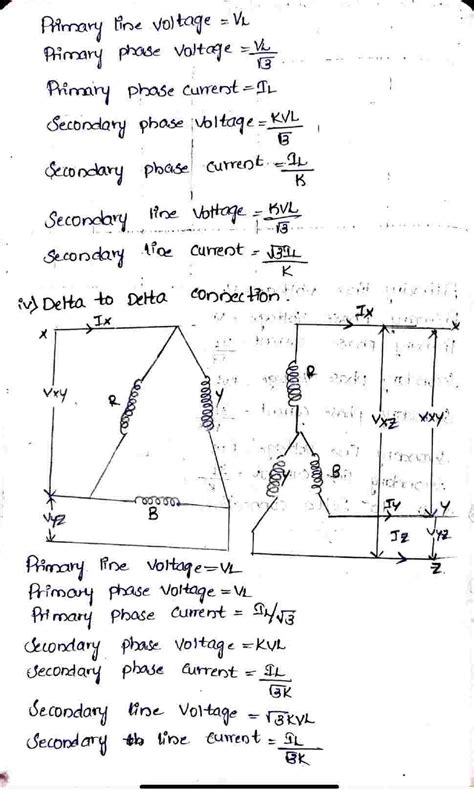 Primary line voltage = VL
Primary phase voltage = VL/√3
Primary phase current = IL
Secondary phase voltage = KVL/√3
Secondary phase current = IL/K
Secondary line voltage = KVL/√3
Secondary line current = √3IL/K
iv) Delta to Delta connection:
X Ix
R Y
VXY
B
VYZ
Ix X
R
VXZ VXY
Y B
IY Y
IZ VYZ
Z
Primary line voltage = VL
Primary phase voltage = VL
Primary phase current = IL/√3
Secondary phase voltage = KVL
Secondary phase current = IL/√3K
Secondary line voltage = √3KVL
Secondary line current = IL/√3K